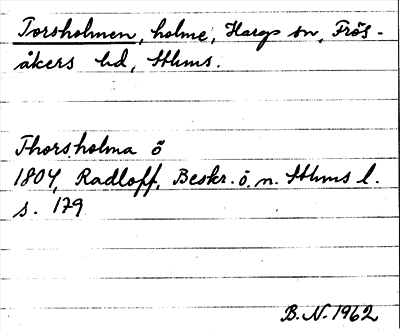 Torsholmen, holme, Hargs sn, Frös-
åkers hd, Sthms.
Thorsholma ö
1804, Radloff, Beskr. ö. n. Sthms l.
s. 179
B. N. 1962